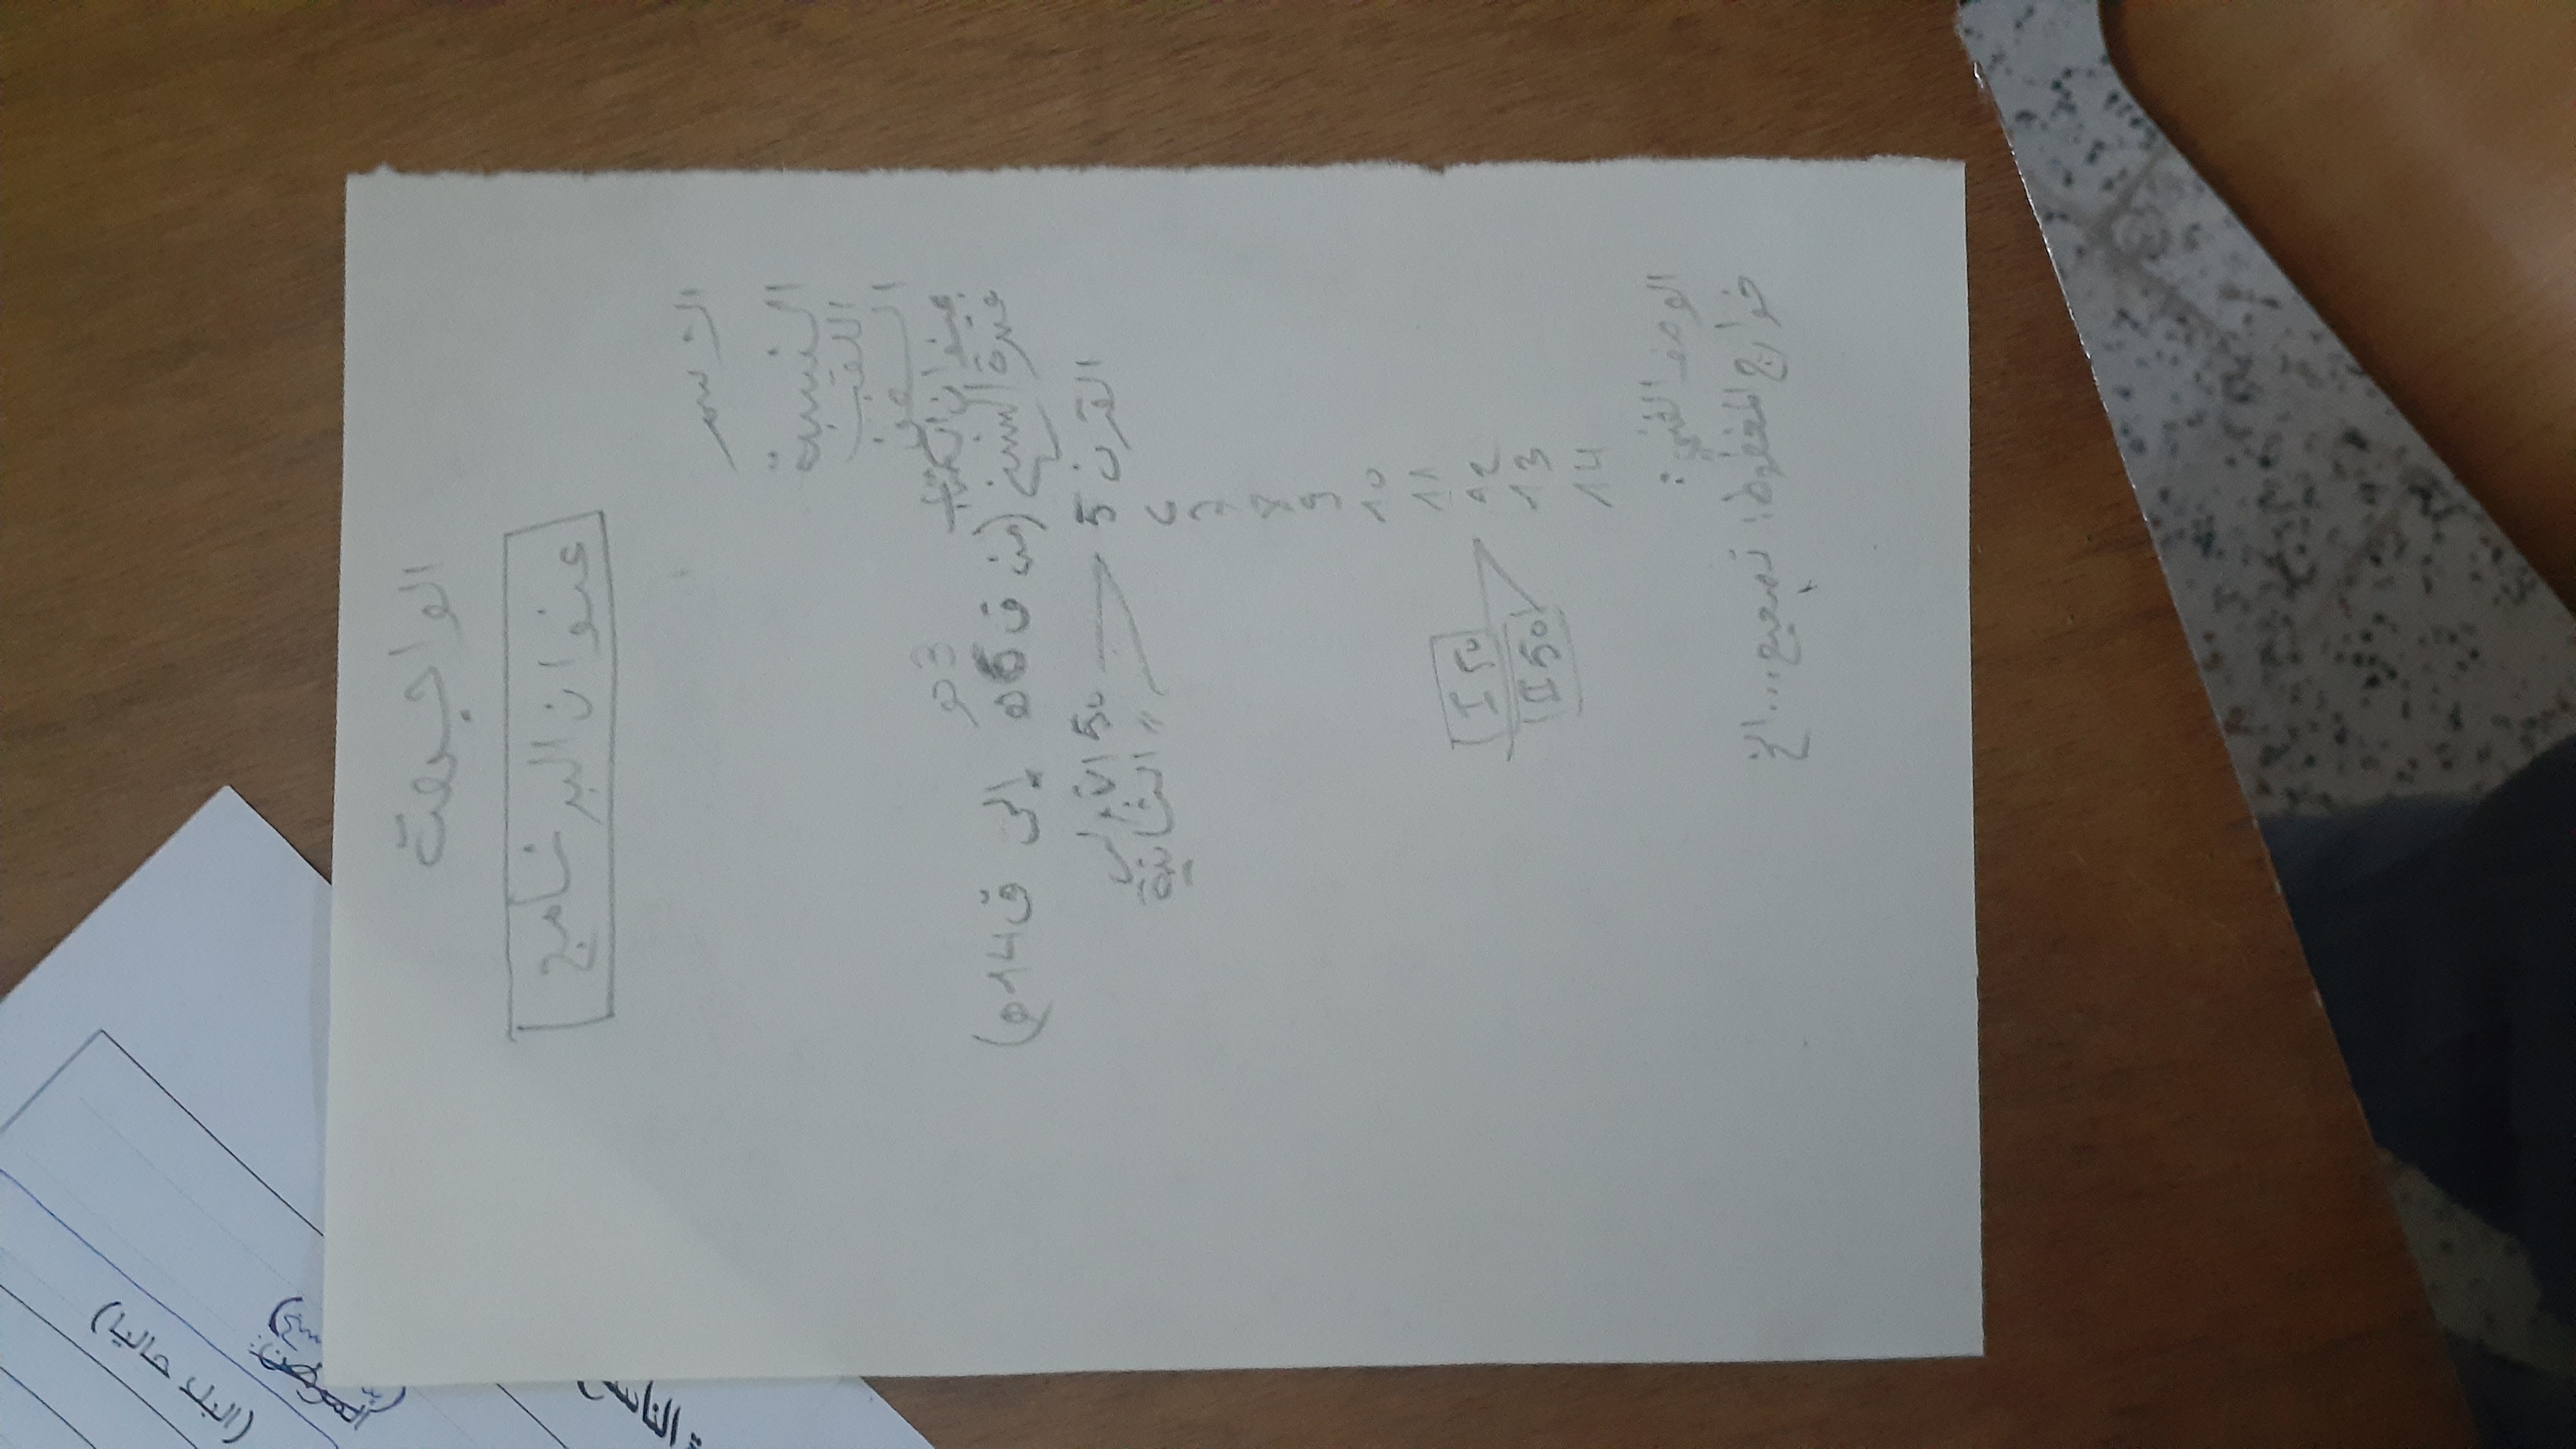 الواجهة
عنوان البرنامج
الاسم
النسبة
اللقب
الفن
عنوان الكتاب
3 هو
فترة النسخ (من ق 6ه إلى ق 14ه)
القرن 5 50 الأولى
" الثانية
6
7
8
9
10
11
12 I 50
13 II 50
14
الوصف الفني:
خوارج المخطوط: تصحيح...الخ